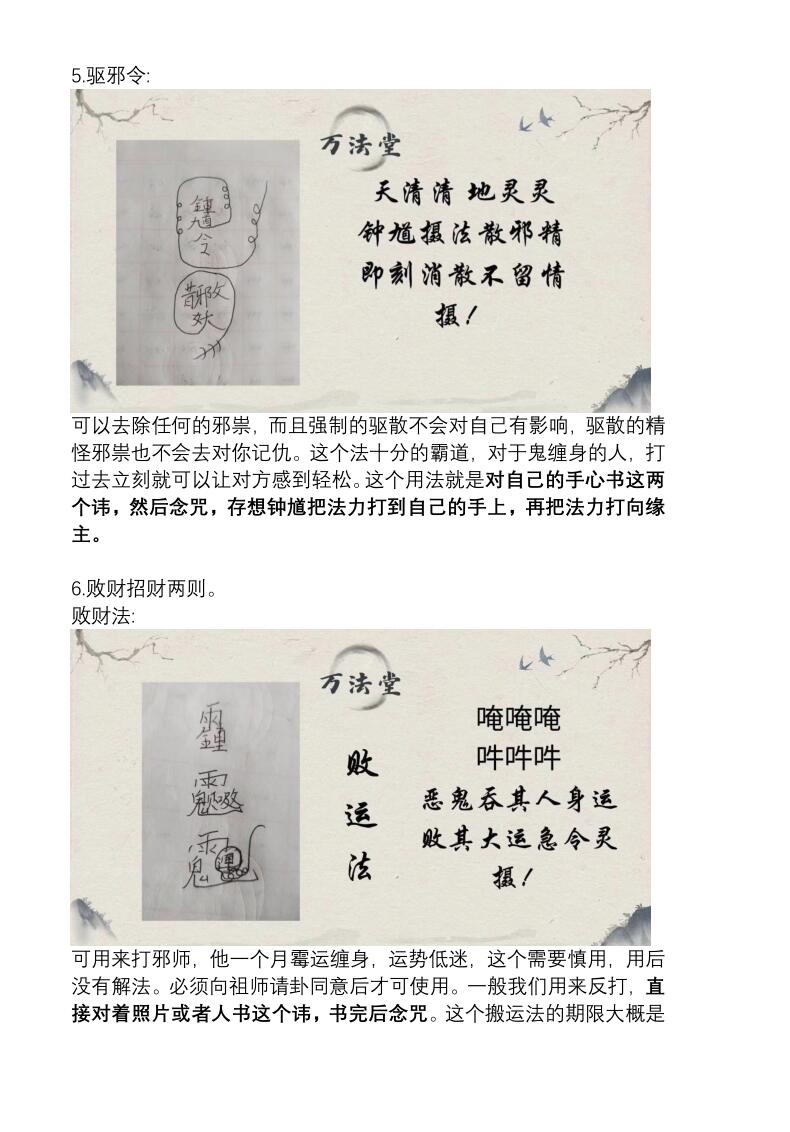 5.驱邪令:
万法堂
鍾馗
令
散邪
妖
天清清 地灵灵
钟馗摄法散邪精
即刻消散不留情
摄！
可以去除任何的邪祟，而且强制的驱散不会对自己有影响，驱散的精
怪邪祟也不会去对你记仇。这个法十分的霸道，对于鬼缠身的人，打
过去立刻就可以让对方感到轻松。这个用法就是对自己的手心书这两
个讳，然后念咒，存想钟馗把法力打到自己的手上，再把法力打向缘
主。
6.败财招财两则。
败财法:
万法堂
败
运
法
唵唵唵
吽吽吽
恶鬼吞其人身运
败其大运急令灵
摄！
可用来打邪师，他一个月霉运缠身，运势低迷，这个需要慎用，用后
没有解法。必须向祖师请卦同意后才可使用。一般我们用来反打，直
接对着照片或者人书这个讳，书完后念咒。这个搬运法的期限大概是